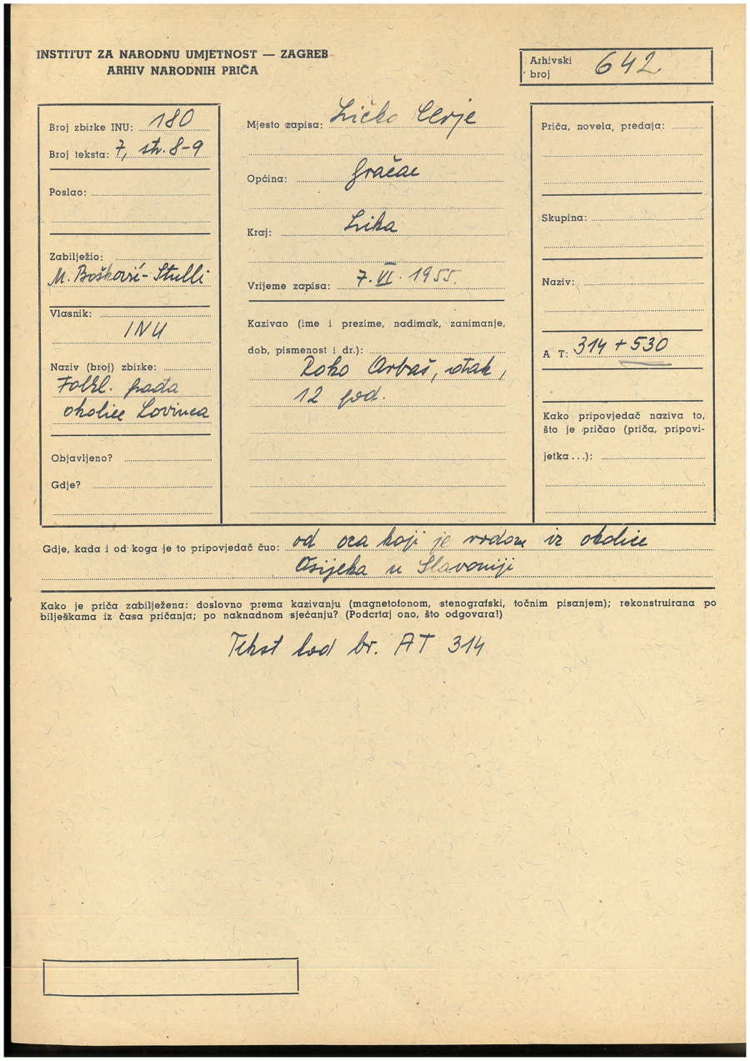 INSTITUT ZA NARODNU UMJETNOST — ZAGREB
ARHIV NARODNIH PRIČA
Arhivski broj 642
Broj zbirke INU: 180
Broj teksta: 7, str. 8-9
Poslao:
Zabilježio:
M. Bošković-Stulli
Vlasnik:
INU
Naziv (broj) zbirke:
Folkl. građa
okolice Lovinca
Objavljeno?
Gdje?
Mjesto zapisa: Ličko Cerje
Općina: Gračac
Kraj: Lika
Vrijeme zapisa: 7. VI. 1955.
Kazivao (ime i prezime, nadimak, zanimanje,
dob, pismenost i dr.):
Roko Orbaš, đak,
12 god.
Priča, novela, predaja:
Skupina:
Naziv:
A T: 314 + 530
Kako pripovjedač naziva to,
što je pričao (priča, pripovi-
jetka...):
Gdje, kada i od koga je to pripovjedač čuo: od oca koji je rodom iz okolice
Osijeka u Slavoniji
Kako je priča zabilježena: doslovno prema kazivanju (magnetofonom, stenografski, točnim pisanjem); rekonstruirana po
bilješkama iz časa pričanja; po naknadnom sjećanju? (Podcrtaj ono, što odgovara!)
Tekst kod br. AT 314